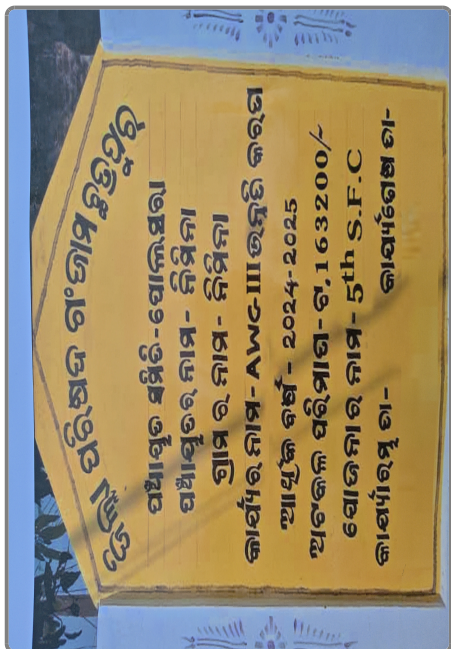 ଜିଲ୍ଲା ପରିଷଦ ଗଂଜାମ ଛତ୍ରପୁର
ପଞ୍ଚାୟତ ସମିତି -ପୋଲସରା
ପଞ୍ଚାୟତର ନାମ - ନିମିନା
ଗ୍ରାମ ର ନାମ - ନିମିନା
କାର୍ଯ୍ୟର ନାମ - AWC-III ଉନ୍ନତି କରଣ
ଆର୍ଥିକ ବର୍ଷ - 2024-2025
ଅଟକଳ ପରିମାଣ - ଟ.163200/-
ଯୋଜନା ର ନାମ - 5th S.F.C
କାର୍ଯ୍ୟାରମ୍ଭ ତା- କାର୍ଯ୍ୟଶେଷ ତା-